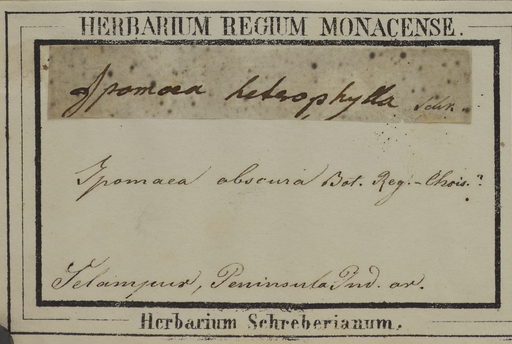 HERBARIUM REGIUM MONACENSE.
Ipomoea heterophylla
Ipomaea obscura Bot. Reg. - Chois."
Selampur, Peninsula Ind. or.
Herbarium Schreberianum.